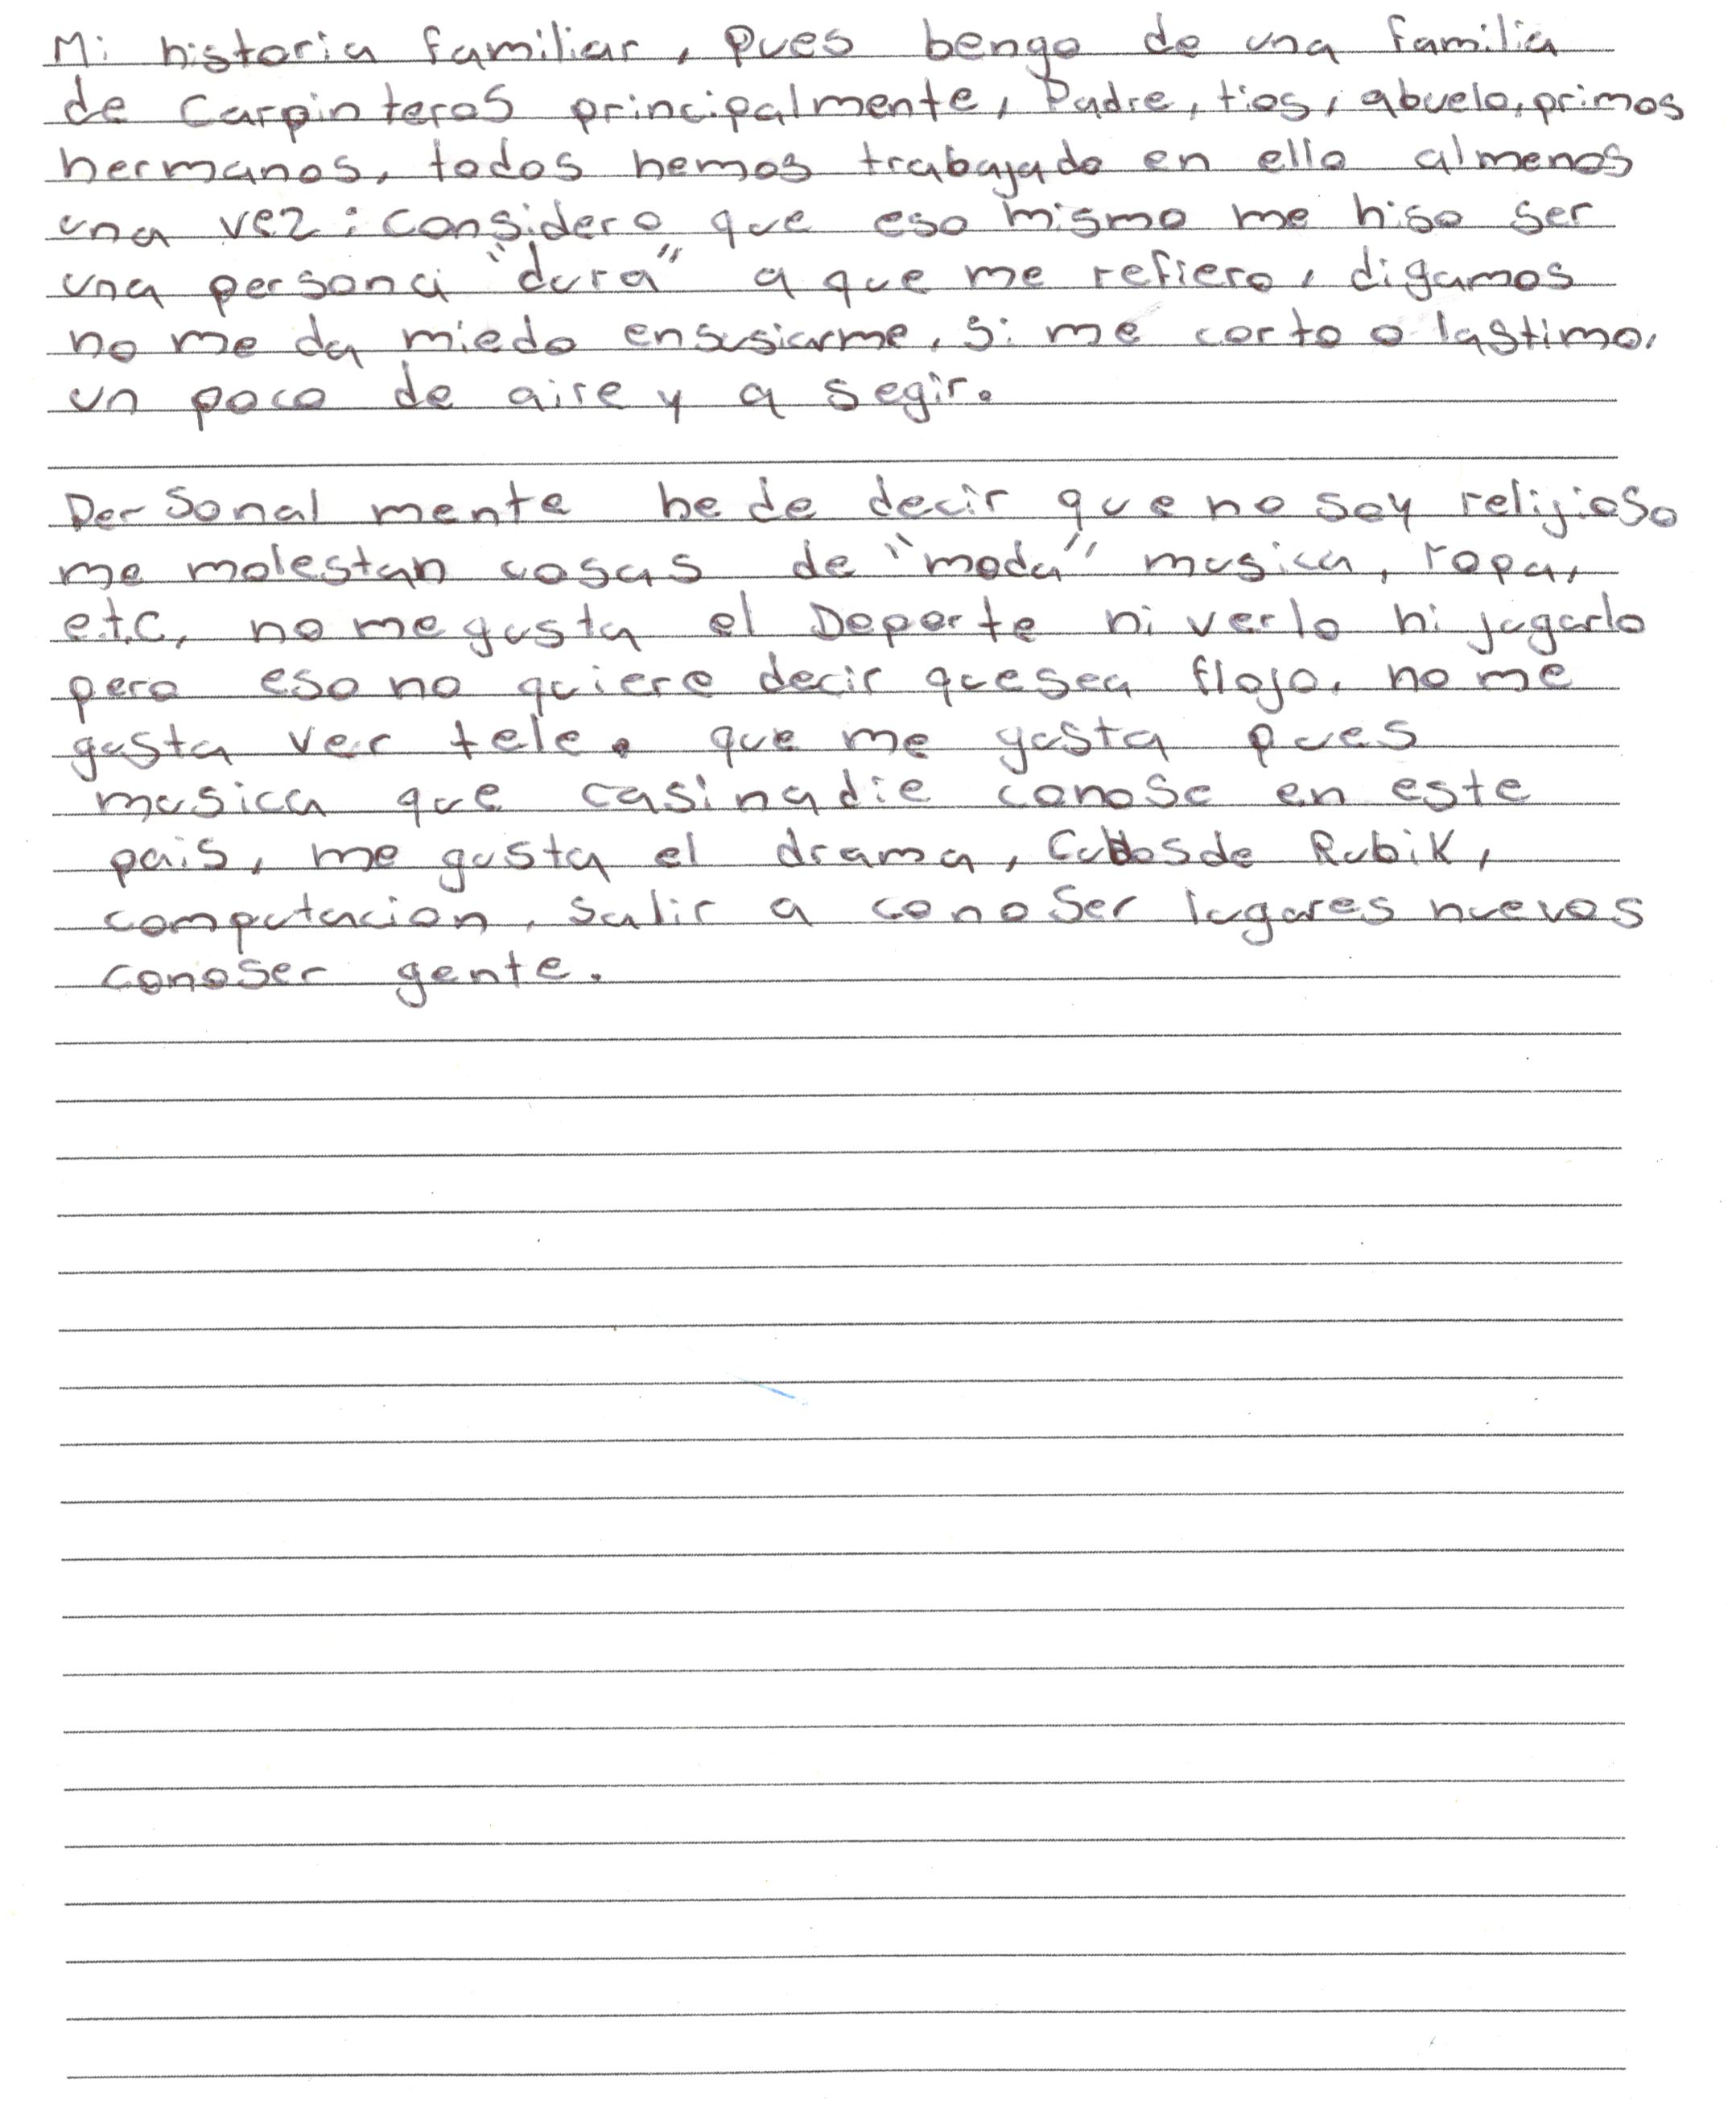 Mi historia familiar, pues bengo de una familia
de Carpinteros principalmente, Padre, tios, abuelo, primos
hermanos, todos hemos trabajado en ello almenos
una vez; considero que eso mismo me hiso ser
una persona "dura" a que me refiero, digamos
no me da miedo ensusiarme, si me corto o lastimo,
un poco de aire y a segir.
Personal mente he de decir que no soy religioso
me molestan cosas de "moda" musica, ropa,
etc, no me gusta el Deporte ni verlo ni jugarlo
pero eso no quiere decir que sea flojo, no me
gusta ver tele. que me gusta pues
musica que casi nadie conose en este
pais, me gusta el drama, Cubos de Rubik,
computacion, salir a conoser lugares nuevos
conoser gente.